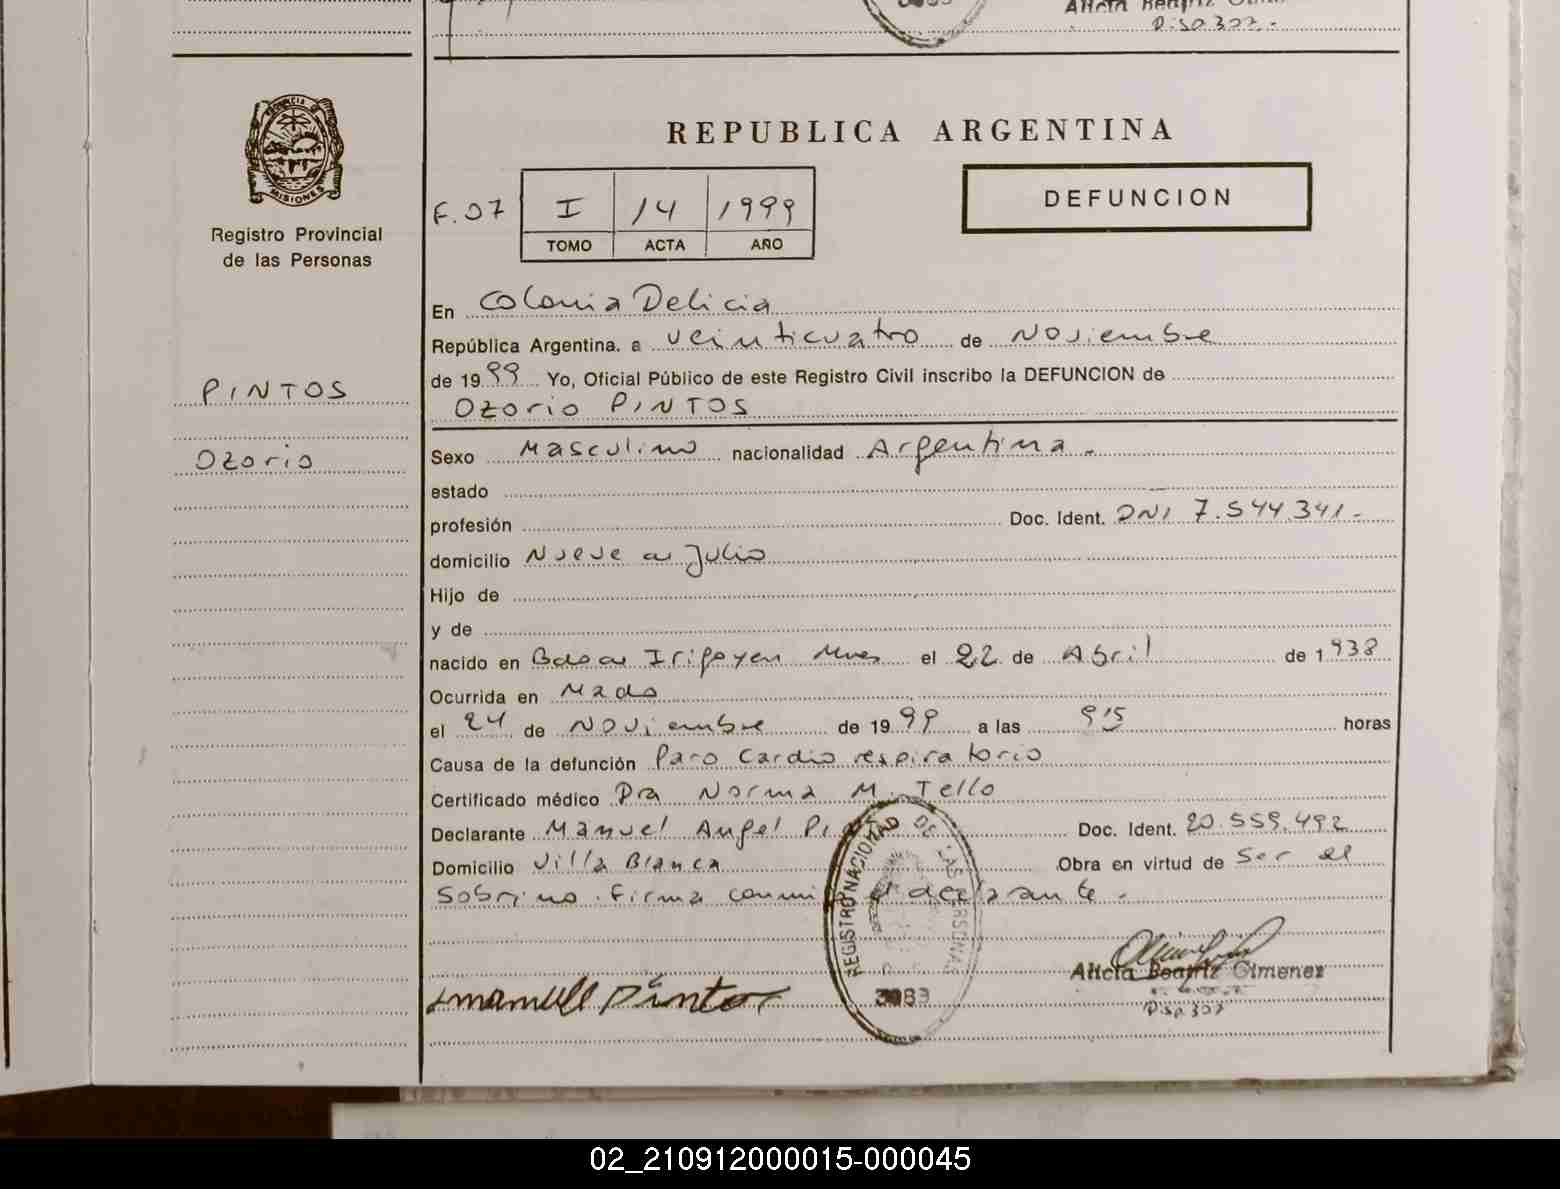 Alicia Beatriz
Disp 307.-
PROVINCIA DE
MISIONES
Registro Provincial
de las Personas
REPUBLICA ARGENTINA
F.07 I 14 1999
TOMO ACTA AÑO
DEFUNCION
En Colonia Delicia
República Argentina, a veinticuatro de Noviembre
de 1999 Yo, Oficial Público de este Registro Civil inscribo la DEFUNCION de
Ozorio PINTOS
PINTOS
Ozorio
Sexo Masculino nacionalidad Argentina.-
estado
profesión Doc. Ident. DNI 7.544.341.-
domicilio Nueve de Julio
Hijo de
y de
nacido en Bdo de Irigoyen Mnes el 22 de Abril de 1938
Ocurrida en Mado
el 24 de Noviembre de 1999 a las 9'15 horas
Causa de la defunción Paro Cardio respiratorio
Certificado médico Dra Norma M. Tello
Declarante Manuel Angel Doc. Ident. 20.559.492
Domicilio Villa Blanca Obra en virtud de Ser el
Sobrino. Firma el declarante.-
REGISTRO NACIONAL DE LAS PERSONAS
3083
Alicia Beatriz Gimenez
Disp 307
Pintos
02_210912000015-000045